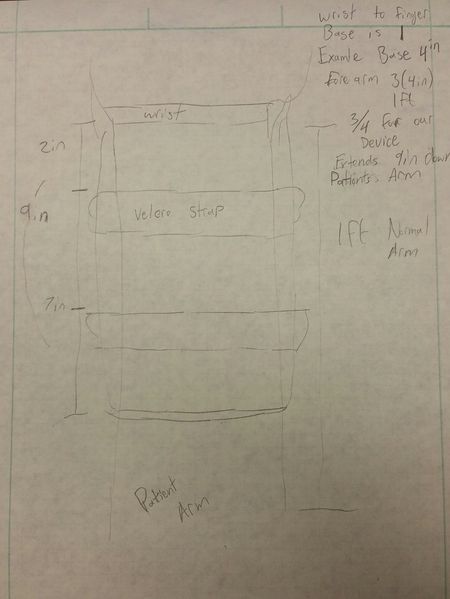 wrist to finger
Base is 1
Examle Base 4in
Fore arm 3(4in)
1ft
3/4 For our
Device
Extends 9in down
Patients Arm
1ft Normal
Arm
wrist
2in
9in
Velcro Strap
7in
Patient
Arm